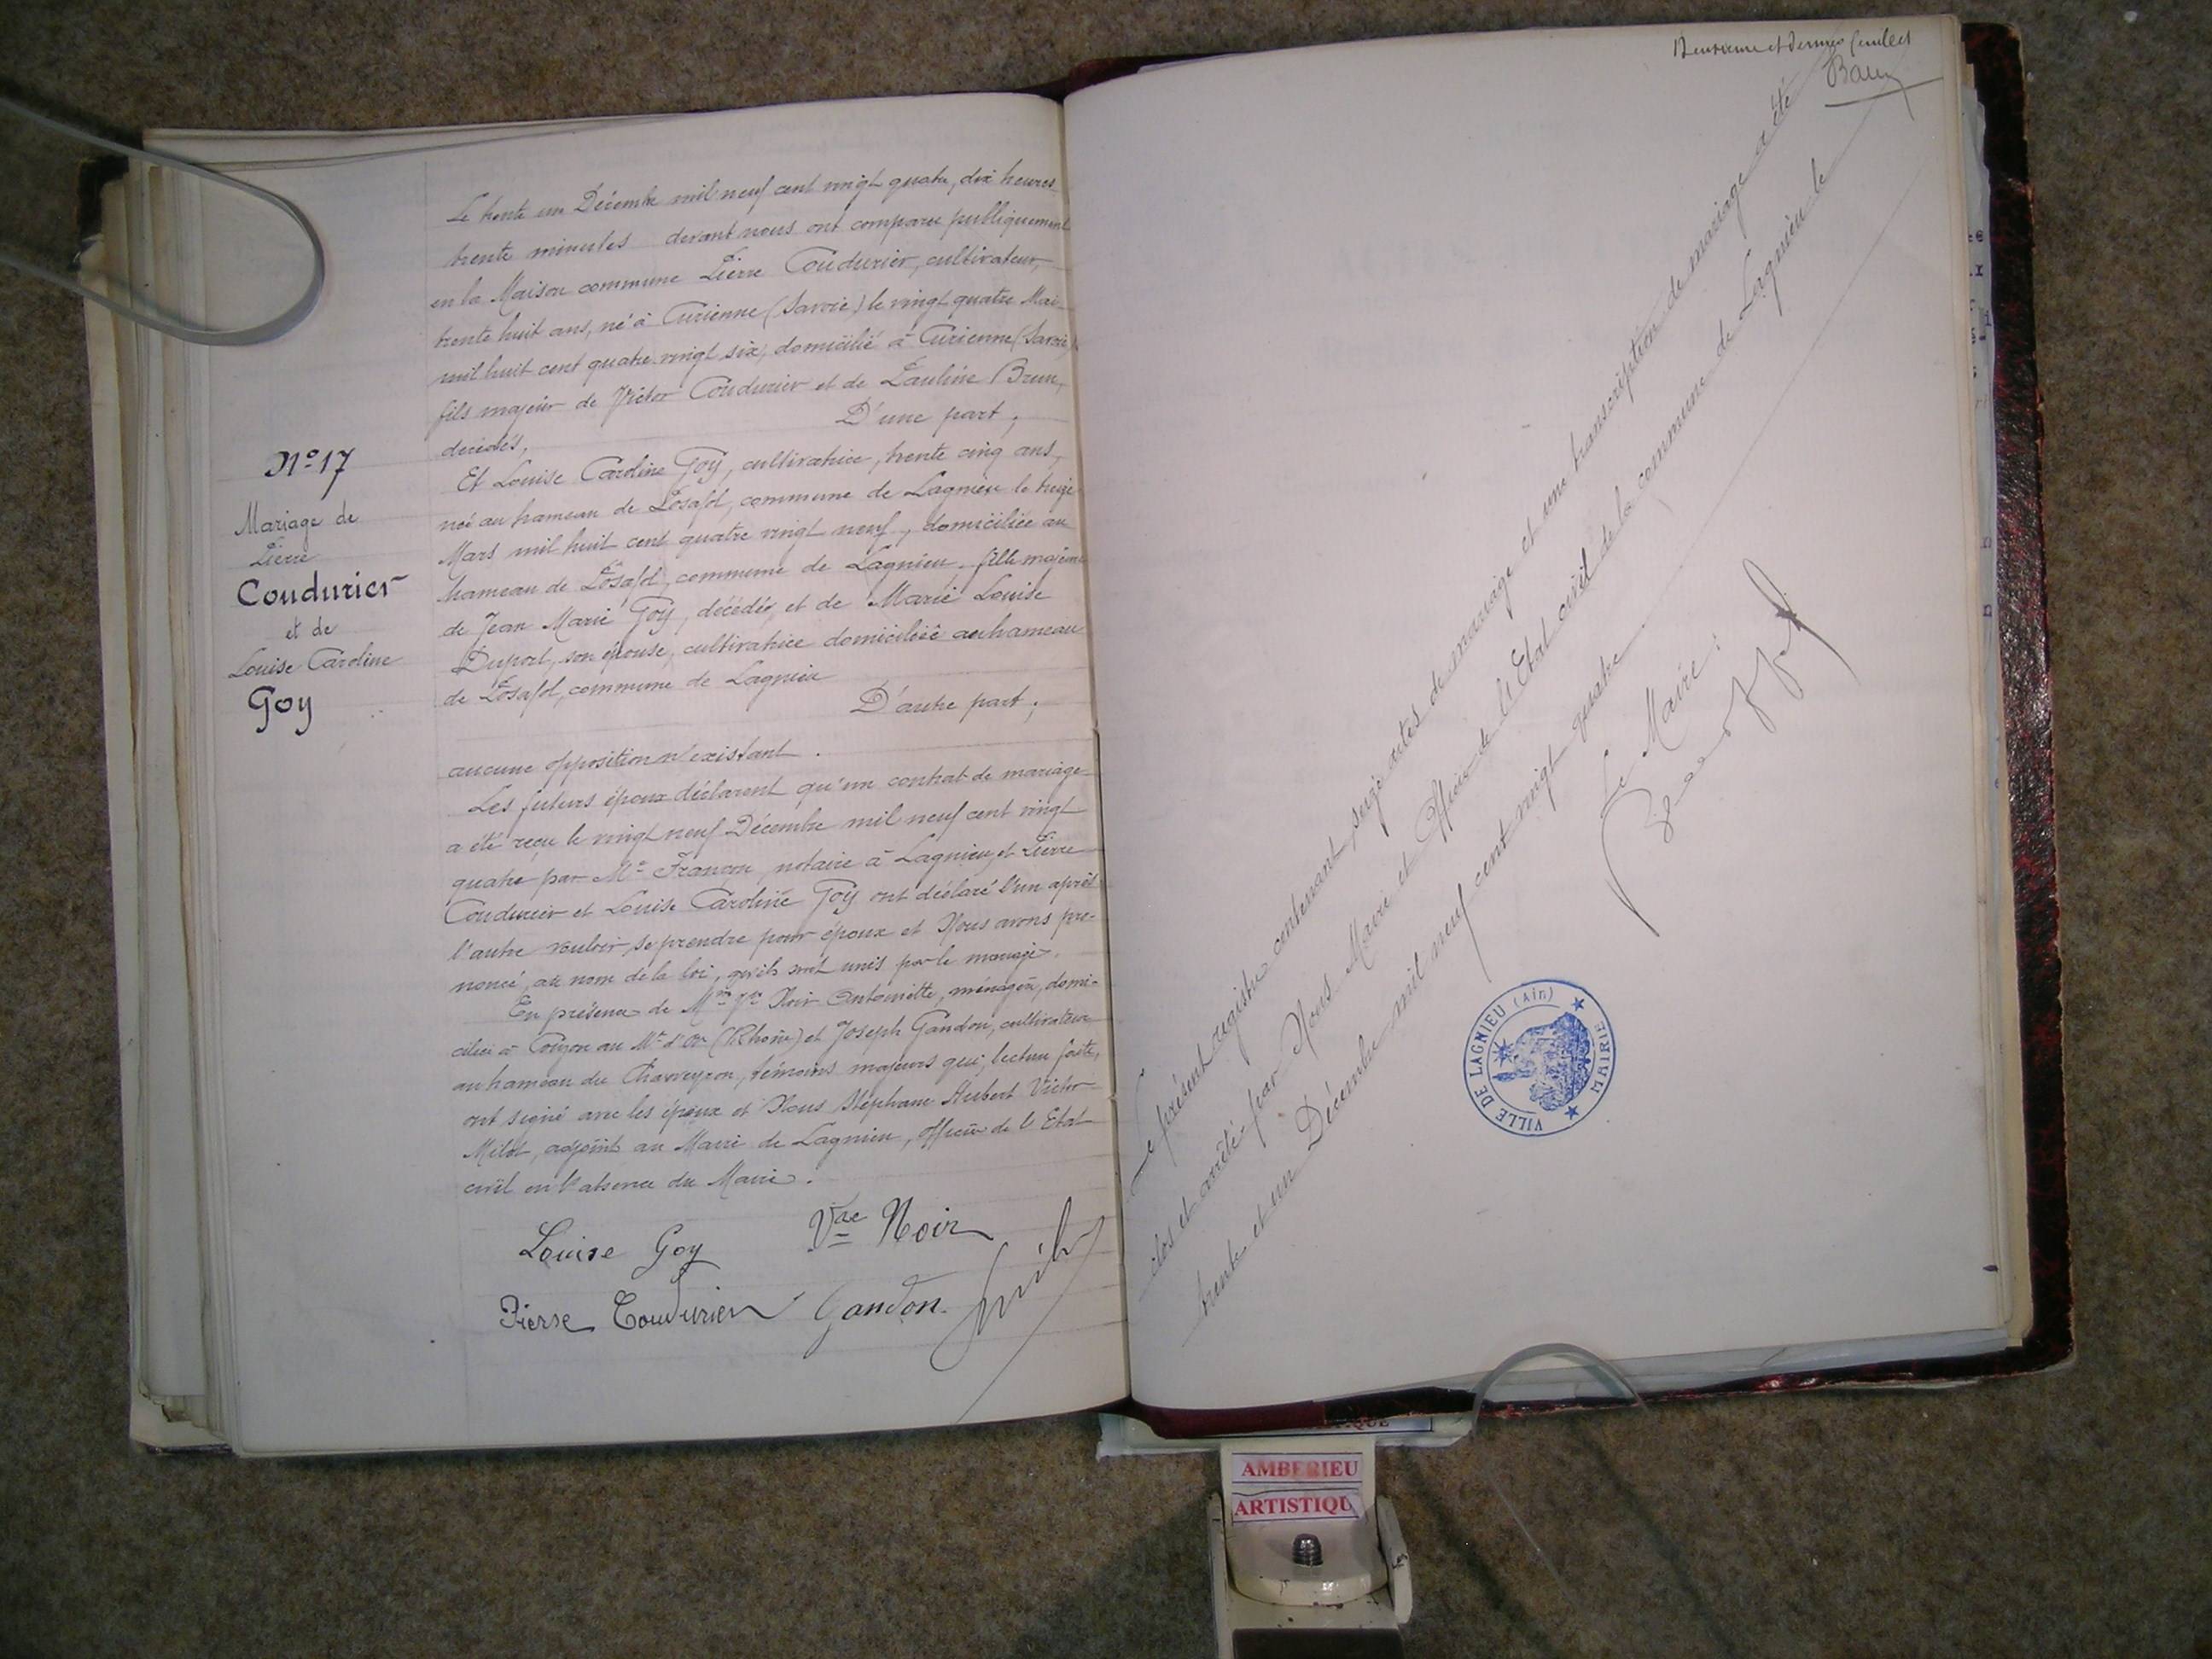 Le trente un Décembre mil neuf cent vingt quatre, dix heures
trente minutes devant nous ont comparu publiquement
en la Maison commune Pierre Coudurier, cultivateur,
trente huit ans, né à Curienne (Savoie) le vingt quatre Mai
mil huit cent quatre vingt six, domicilié à Curienne (Savoie)
fils majeur de Victor Coudurier et de Pauline Brun,
décédés, D'une part,
Et Louise Caroline Goy, cultivatrice, trente cinq ans,
née au hameau de Posafol, commune de Lagnieu le treize
Mars mil huit cent quatre vingt neuf, domiciliée au
hameau de Posafol, commune de Lagnieu, fille majeure
de Jean Marie Goy, décédé, et de Marie Louise
Duport, son épouse, cultivatrice domiciliée au hameau
de Posafol, commune de Lagnieu
D'autre part;
aucune opposition n'existant.
Les futurs époux déclarent qu'un contrat de mariage
a été reçu le vingt neuf Décembre mil neuf cent vingt
quatre par Me Francon, notaire à Lagnieu, et Pierre
Coudurier et Louise Caroline Goy ont déclaré l'un après
l'autre vouloir se prendre pour époux et Nous avons pro-
noncé, au nom de la loi, qu'ils sont unis par le mariage.
En présence de Mme Vve Noir Antoinette, ménagère, domi-
ciliée à Couzon au Mt d'Or (Rhône) et Joseph Gandon, cultivateur
au hameau du Charveyron, témoins majeurs qui, lecture faite,
ont signé avec les époux et Nous Stéphane Hubert Victor
Milot, adjoint au Maire de Lagnieu, officier de l'Etat
civil en l'absence du Maire.
Louise Goy Vve Noir
Pierre Coudurier Gandon
N° 17
Mariage de
Pierre
Coudurier
et de
Louise Caroline
Goy
Deuxième et dernier feuillet
Le présent registre contenant seize actes de mariage et une transcription de mariage a été
clos et arrêté par Nous Maire et Officier de l'Etat civil de la commune de Lagnieu le
trente et un Décembre mil neuf cent vingt quatre
Le Maire:
VILLE DE LAGNIEU (Ain)
MAIRIE
AMBERIEU
ARTISTIQU